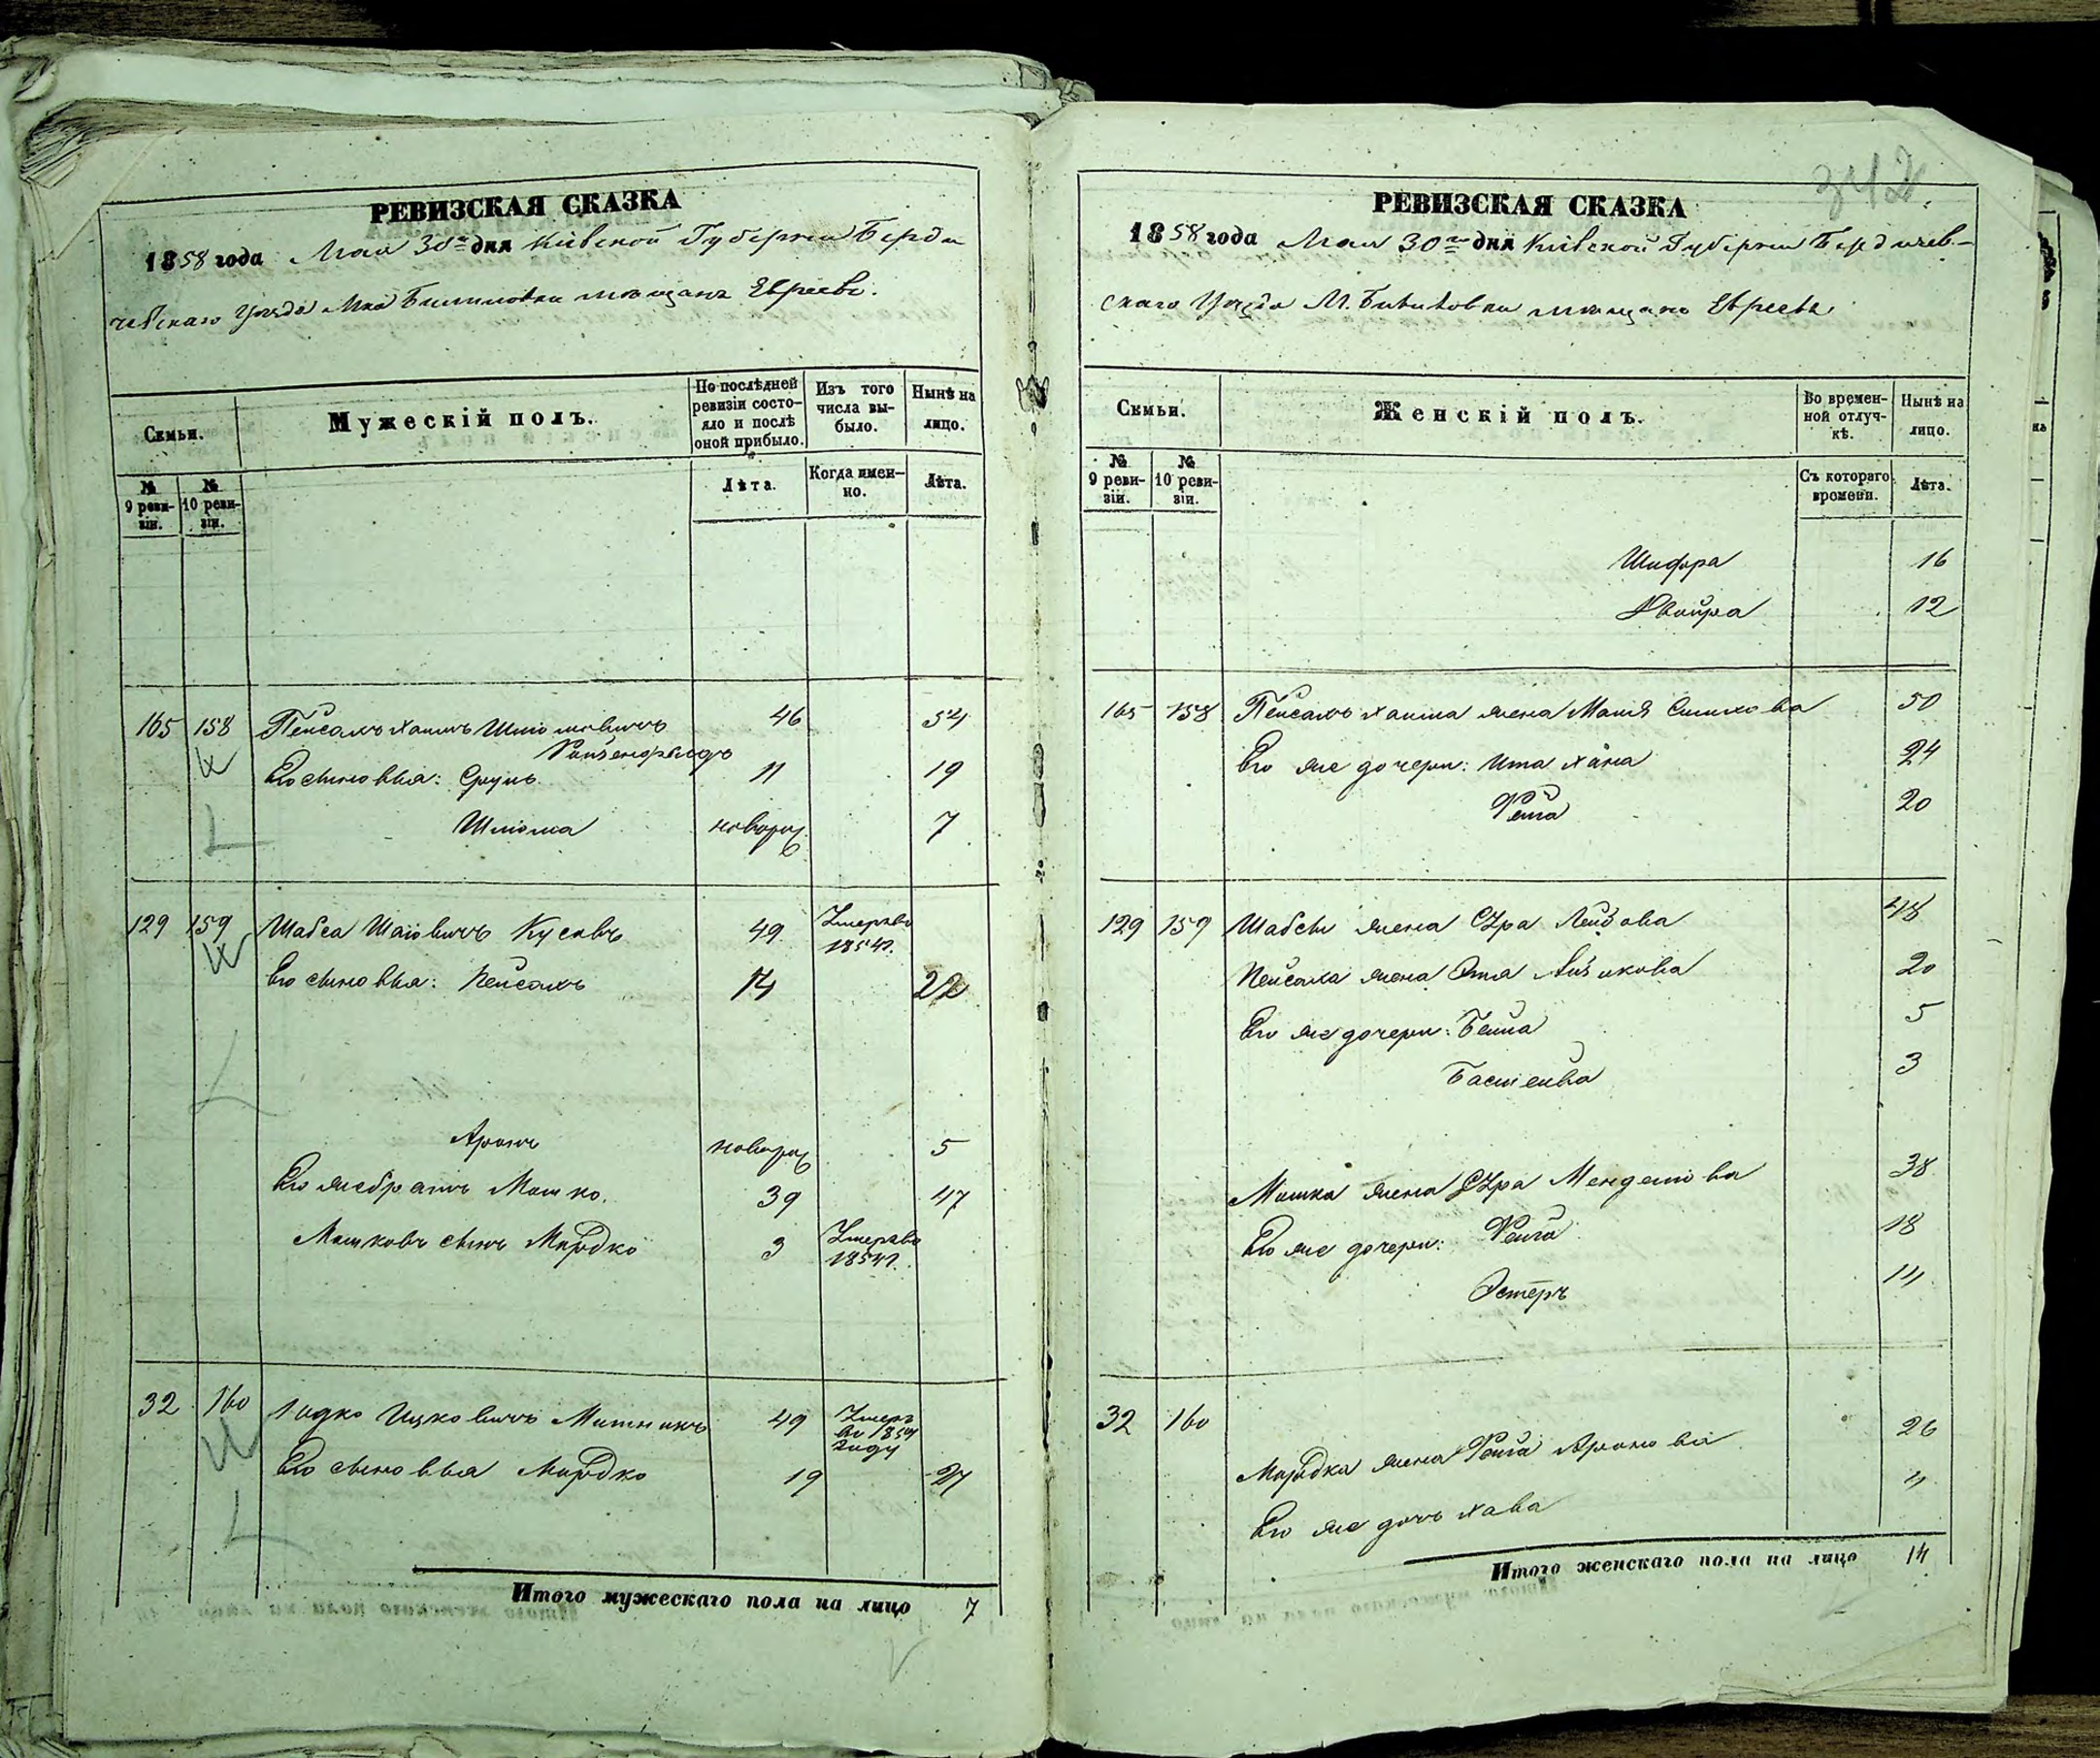 РЕВИЗСКАЯ СКАЗКА
1858 года Мая 30го дня Кіевской Губерніи Берди
чевскаго Уѣзда Мка Билиловки мѣщанъ Евреевъ.
Семьи.
Мужескій полъ.
По послѣдней ревизіи состояло и послѣ оной прибыло.
Изъ того числа выбыло.
Нынѣ на лицо.
№ 9 ревизіи.
№ 10 ревизіи.
Лѣта.
Когда именно.
Лѣта.
165 158 Пейсахъ Хаимъ Шліомовичъ 46 54
Ройзенфельдъ
Его сыновья: Сруль 11 19
Шліома новорож 7
129 159 Шабса Шаіовичъ 49 Умеръ въ 1854.
Его сыновья: Пейсахъ 14 22
Аронъ новорож 5
Его же братъ Мошко. 39 47
Мошковъ сынъ Мордко 3 Умеръ въ 1854.
32 160 Іцковичъ Митникъ 49 Умеръ въ 1854 году
Его сыновья Мордко 19 27
Итого мужескаго пола на лицо 7
342
РЕВИЗСКАЯ СКАЗКА
1858 года Мая 30го дня Кіевской Губерніи Бердичев-
скаго Уѣзда М. Билиловки мѣщанъ Евреевъ.
Семьи.
Женскій полъ.
Во временной отлучкѣ.
Нынѣ на лицо.
№ 9 ревизіи.
№ 10 ревизіи.
Съ котораго времени.
Лѣта.
Шифра 16
Двойра 12
165 158 Пейсахъ Хаима жена Маня 50
Его же дочери: Ита Хана 24
Рейза 20
129 159 Шабсы жена Сура Лейбова 48
Пейсаха жена Этя Айзикова 20
Его же дочери: Бейла 5
Басшейва 3
Мошка жена Сура Менделіова 38
Его же дочери: Рейза 18
Эстеръ 14
32 160
Мордка жена Рейза Аронова 26
Его же дочь Хава 4
Итого женскаго пола на лицо 14